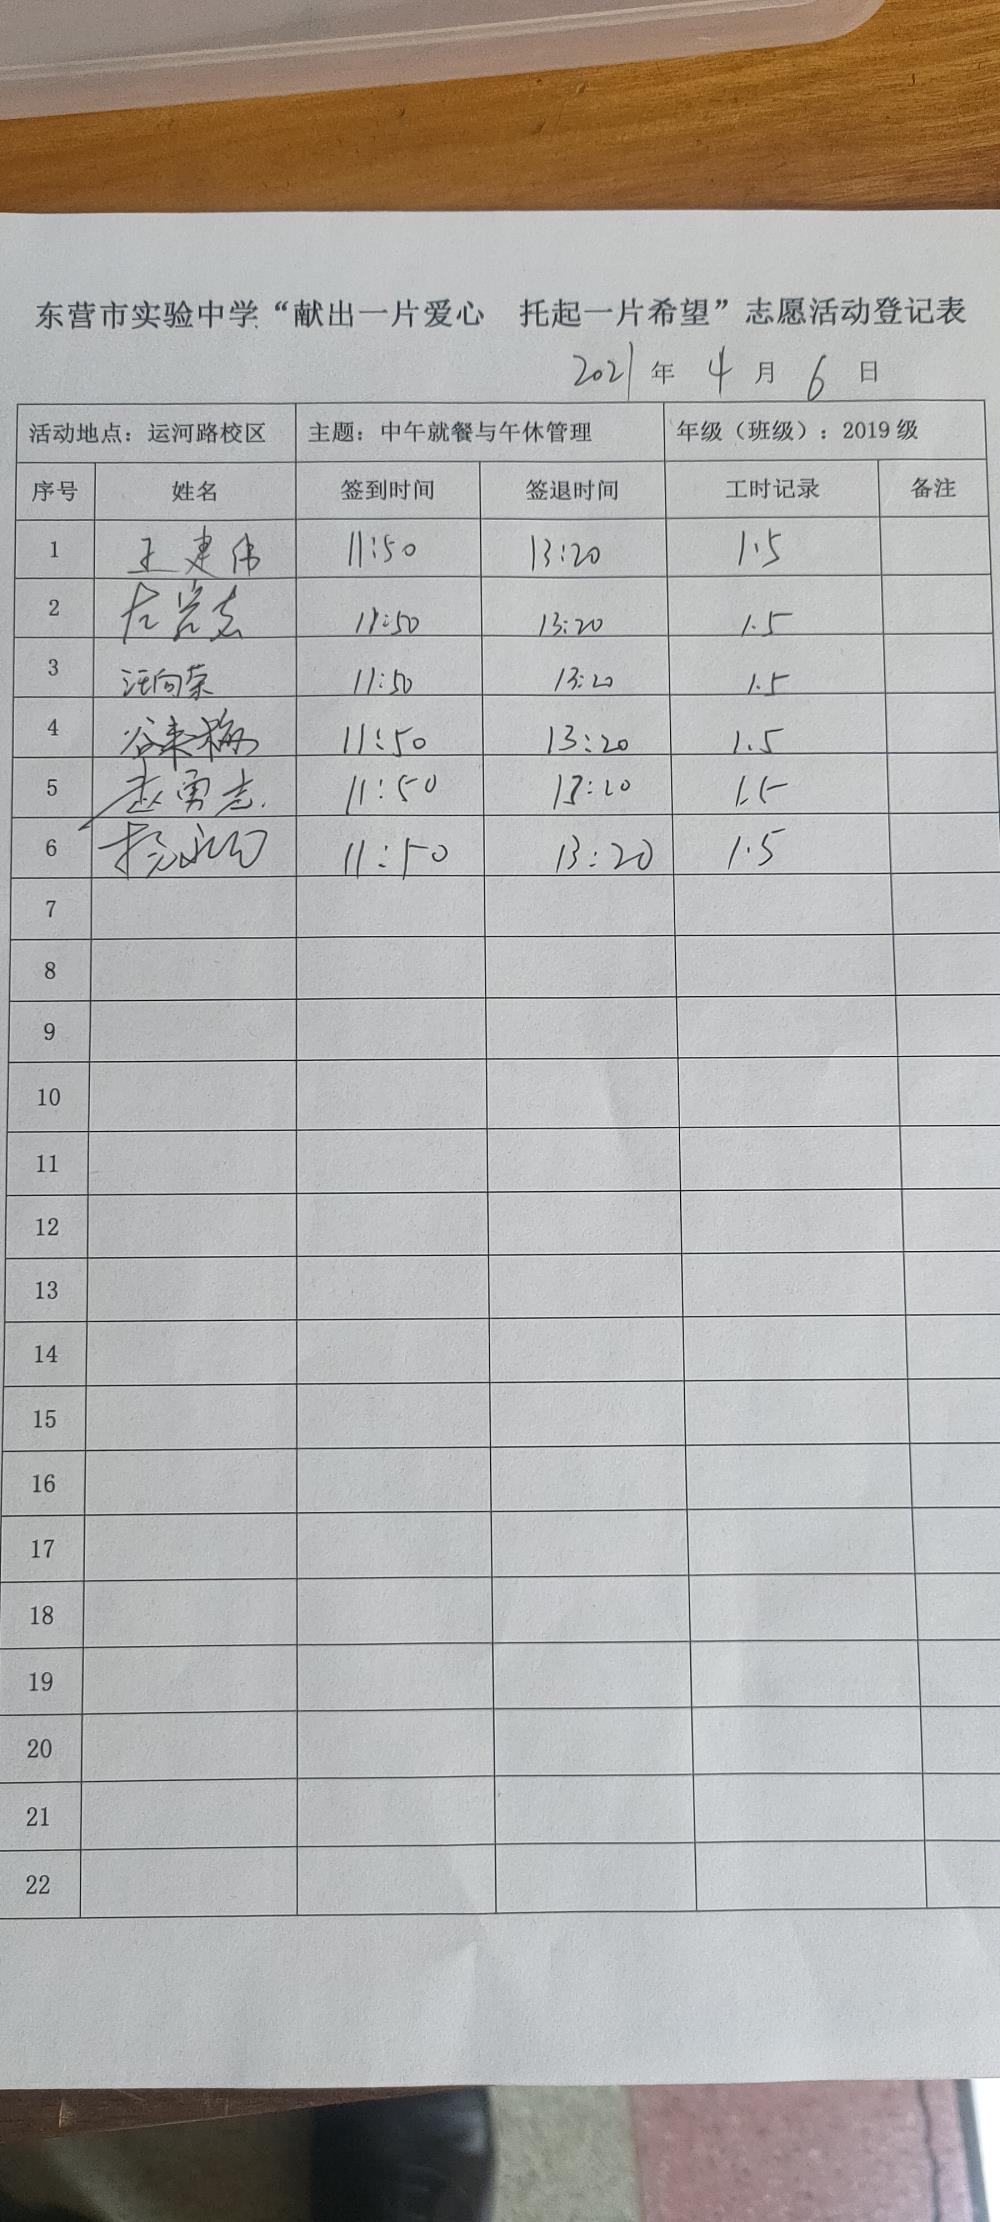 东营市实验中学“献出一片爱心 托起一片希望”志愿活动登记表
2021 年 4 月 6 日
活动地点：运河路校区 主题：中午就餐与午休管理 年级（班级）：2019 级
序号 姓名 签到时间 签退时间 工时记录 备注
1 王建伟 11:50 13:20 1.5
2 11:50 13:20 1.5
3 汪向荣 11:50 13:20 1.5
4 谷来梅 11:50 13:20 1.5
5 赵勇志 11:50 13:20 1.5
6 11:50 13:20 1.5
7
8
9
10
11
12
13
14
15
16
17
18
19
20
21
22